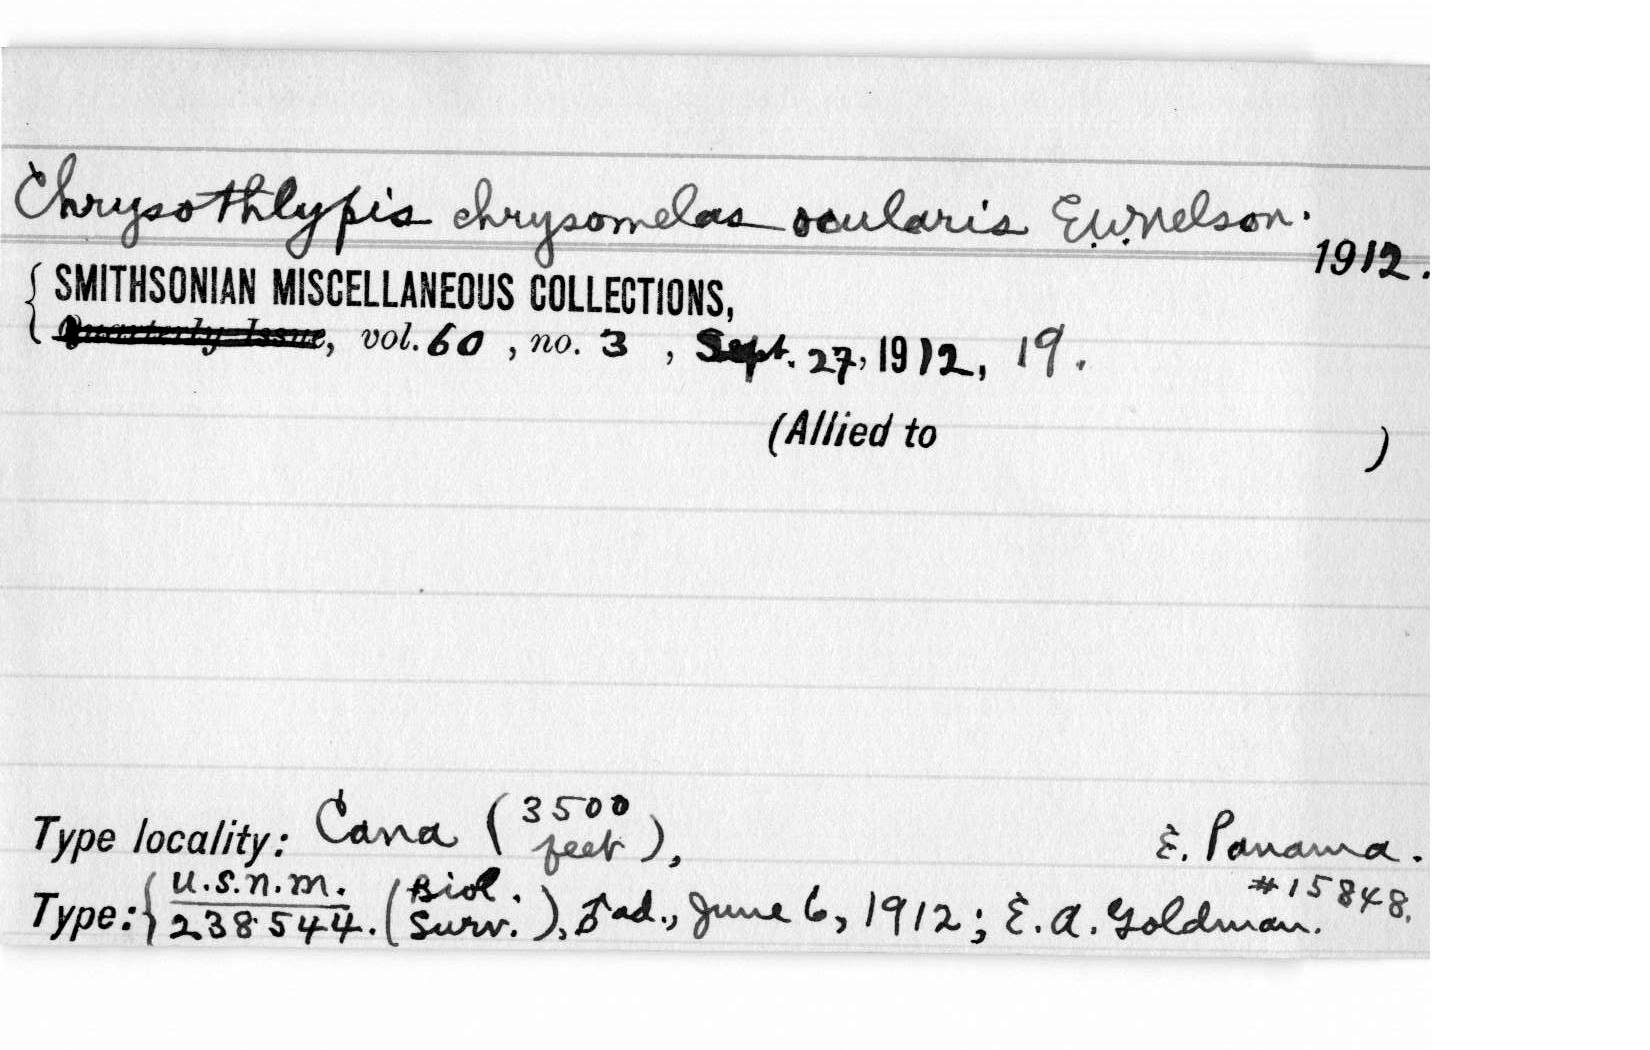 Chrysothlypis chrysomelas ocularis E.W.Nelson.
1912.
SMITHSONIAN MISCELLANEOUS COLLECTIONS,
Quarterly Issue, vol. 60, no. 3, Sept. 27, 1912, 19.
(Allied to )
Type locality: Cana (3500 feet), E. Panama.
#15848.
Type: {U.S.N.M. 238544. (Biol. Surv.), ♂ ad., June 6, 1912; E. A. Goldman.